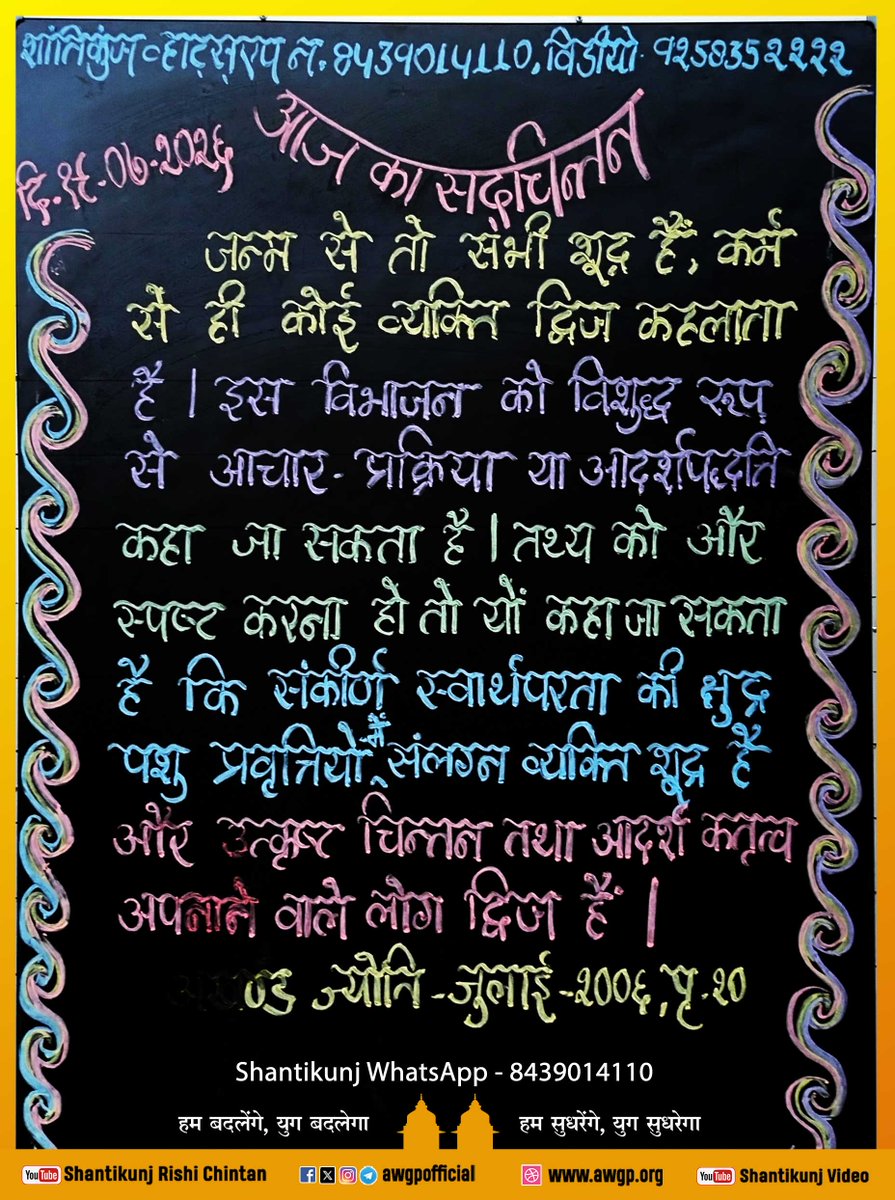 शांतिकुंज व्हाट्सएप न. 8439014110, विडीयो ९२58352222
आज का सद्चिन्तन
दि. १५-०७-२०२६
जन्म से तो सभी शूद्र हैं, कर्म
से ही कोई व्यक्ति द्विज कहलाता
है। इस विभाजन को विशुद्ध रूप
से आचार-प्रक्रिया या आदर्शपद्धति
कहा जा सकता है। तथ्य को और
स्पष्ट करना हो तो यों कहा जा सकता
है कि संकीर्ण स्वार्थपरता की क्षुद्र
पशु प्रवृत्तियों में संलग्न व्यक्ति शूद्र हैं
और उत्कृष्ट चिन्तन तथा आदर्श कतृत्व
अपनाने वाले लोग द्विज हैं।
ण्ड ज्योति -जुलाई-२००६, पृ.-२०
Shantikunj WhatsApp - 8439014110
हम बदलेंगे, युग बदलेगा हम सुधरेंगे, युग सुधरेगा
YouTube Shantikunj Rishi Chintan awgpofficial www.awgp.org YouTube Shantikunj Video